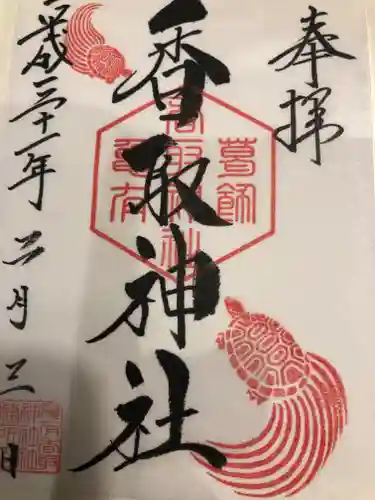 奉拝
香取神社
平成三十一年二月三日
葛飾
香取神社
亀有